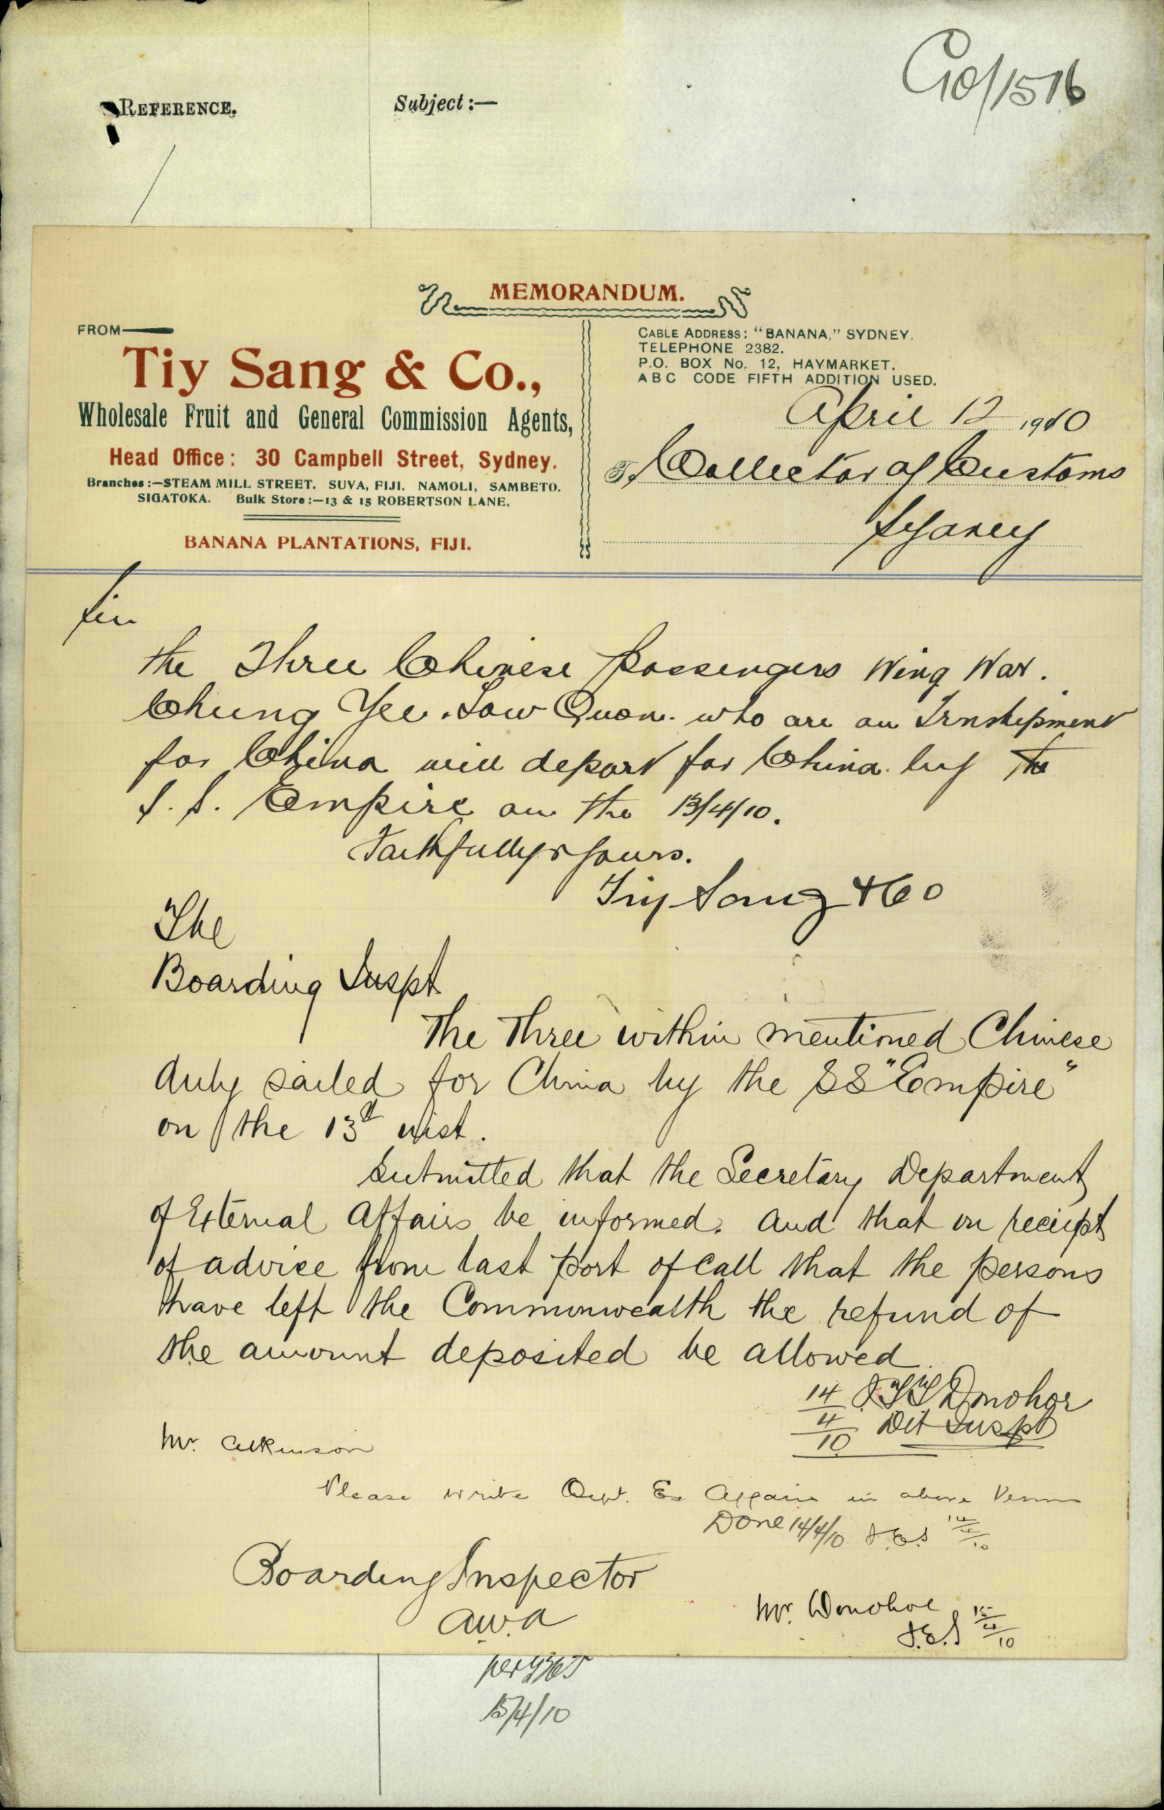 C10/1576
REFERENCE.
Subject:—
MEMORANDUM.
FROM
Tiy Sang & Co.,
Wholesale Fruit and General Commission Agents,
Head Office: 30 Campbell Street, Sydney.
Branches:—STEAM MILL STREET. SUVA, FIJI. NAMOLI, SAMBETO.
SIGATOKA. Bulk Store:—13 & 15 ROBERTSON LANE.
BANANA PLANTATIONS, FIJI.
CABLE ADDRESS: "BANANA," SYDNEY.
TELEPHONE 2382.
P.O. BOX No. 12, HAYMARKET.
A B C CODE FIFTH ADDITION USED.
April 12 1910
To Collector of Customs
Sydney
Sir
the Three Chinese passengers Wing War.
Chung Yee. Low Quon. who are on Trnshipment
for China will depart for China by the
S. S. Empire on the 13/4/10.
Faithfully yours.
Tiy Sang & Co
The
Boarding Inspt
The Three within mentioned Chinese
duly sailed for China by the SS "Empire"
on the 13th inst.
Submitted that the Secretary Department
of External Affairs be informed. And that on receipt
of advice from last port of call that the persons
have left the Commonwealth the refund of
the amount deposited be allowed.
14/4/10 Donohoe
Det Inspt
Mr. Atkinson
Please write Dept. Ex Affairs in above terms
Done 14/4/10 J.E.S 14/4/10
Boarding Inspector
A.W.A
Mr. Donohoe
J.E.S 15/4/10
per
15/4/10